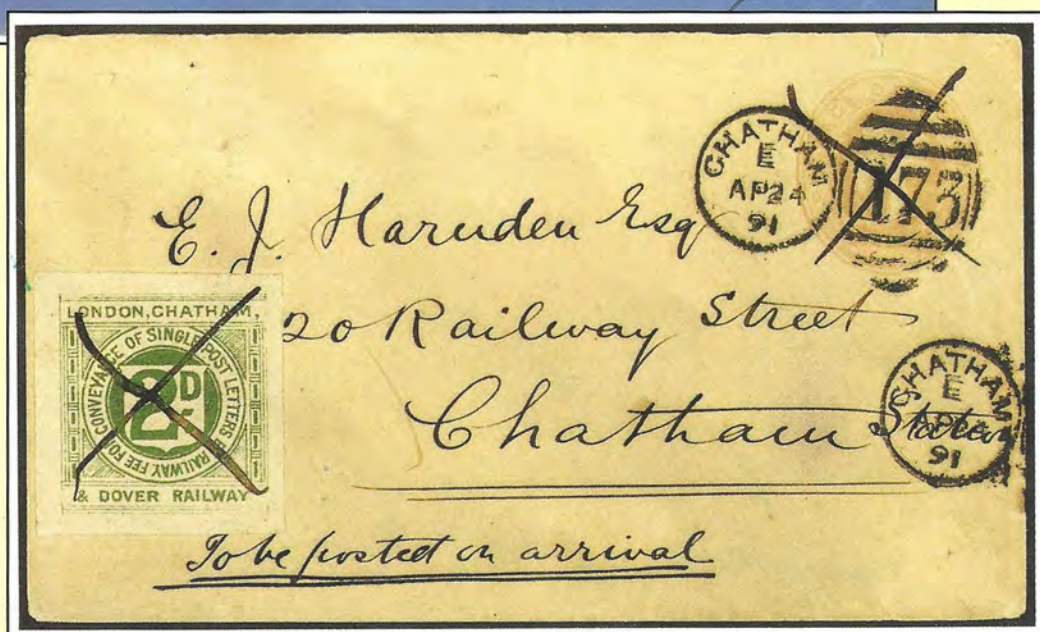 CHATHAM
E
AP24
91
173
E. J. Harnden Esq
20 Railway Street
Chatham Station
CHATHAM
E
AP24
91
LONDON, CHATHAM,
RAILWAY FEE FOR CONVEYANCE OF SINGLE POST LETTERS BY
2D
& DOVER RAILWAY
To be posted on arrival